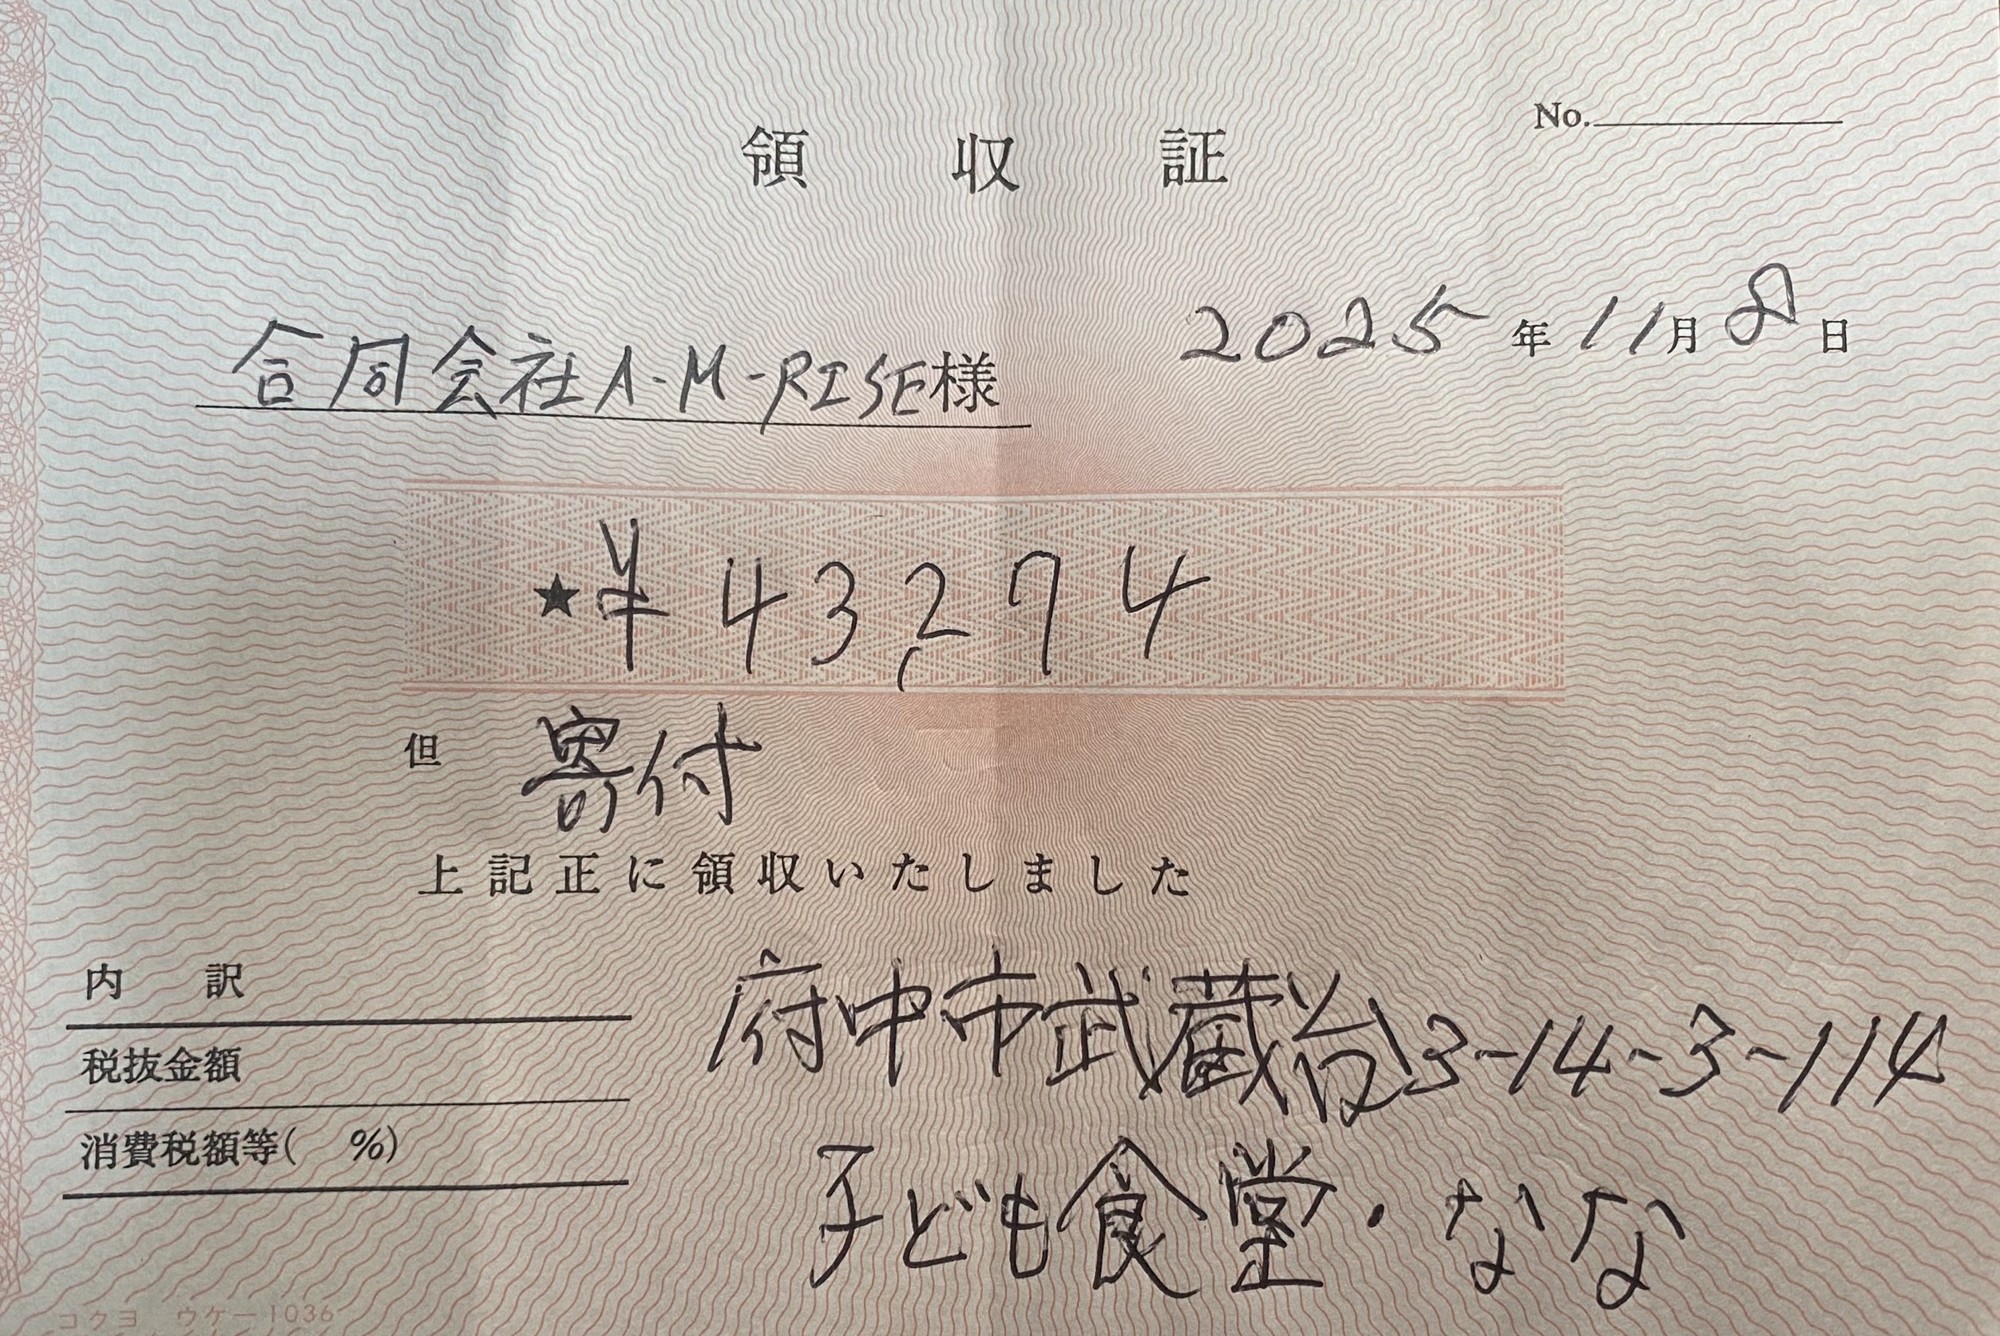 No.
領収証
2025年11月8日
合同会社A-M-RISE様
★¥43,274
但 寄付
上記正に領収いたしました
内訳
税抜金額
消費税額等( %)
府中市武蔵台3-14-3-114
子ども食堂・なな
コクヨ ウケー1036